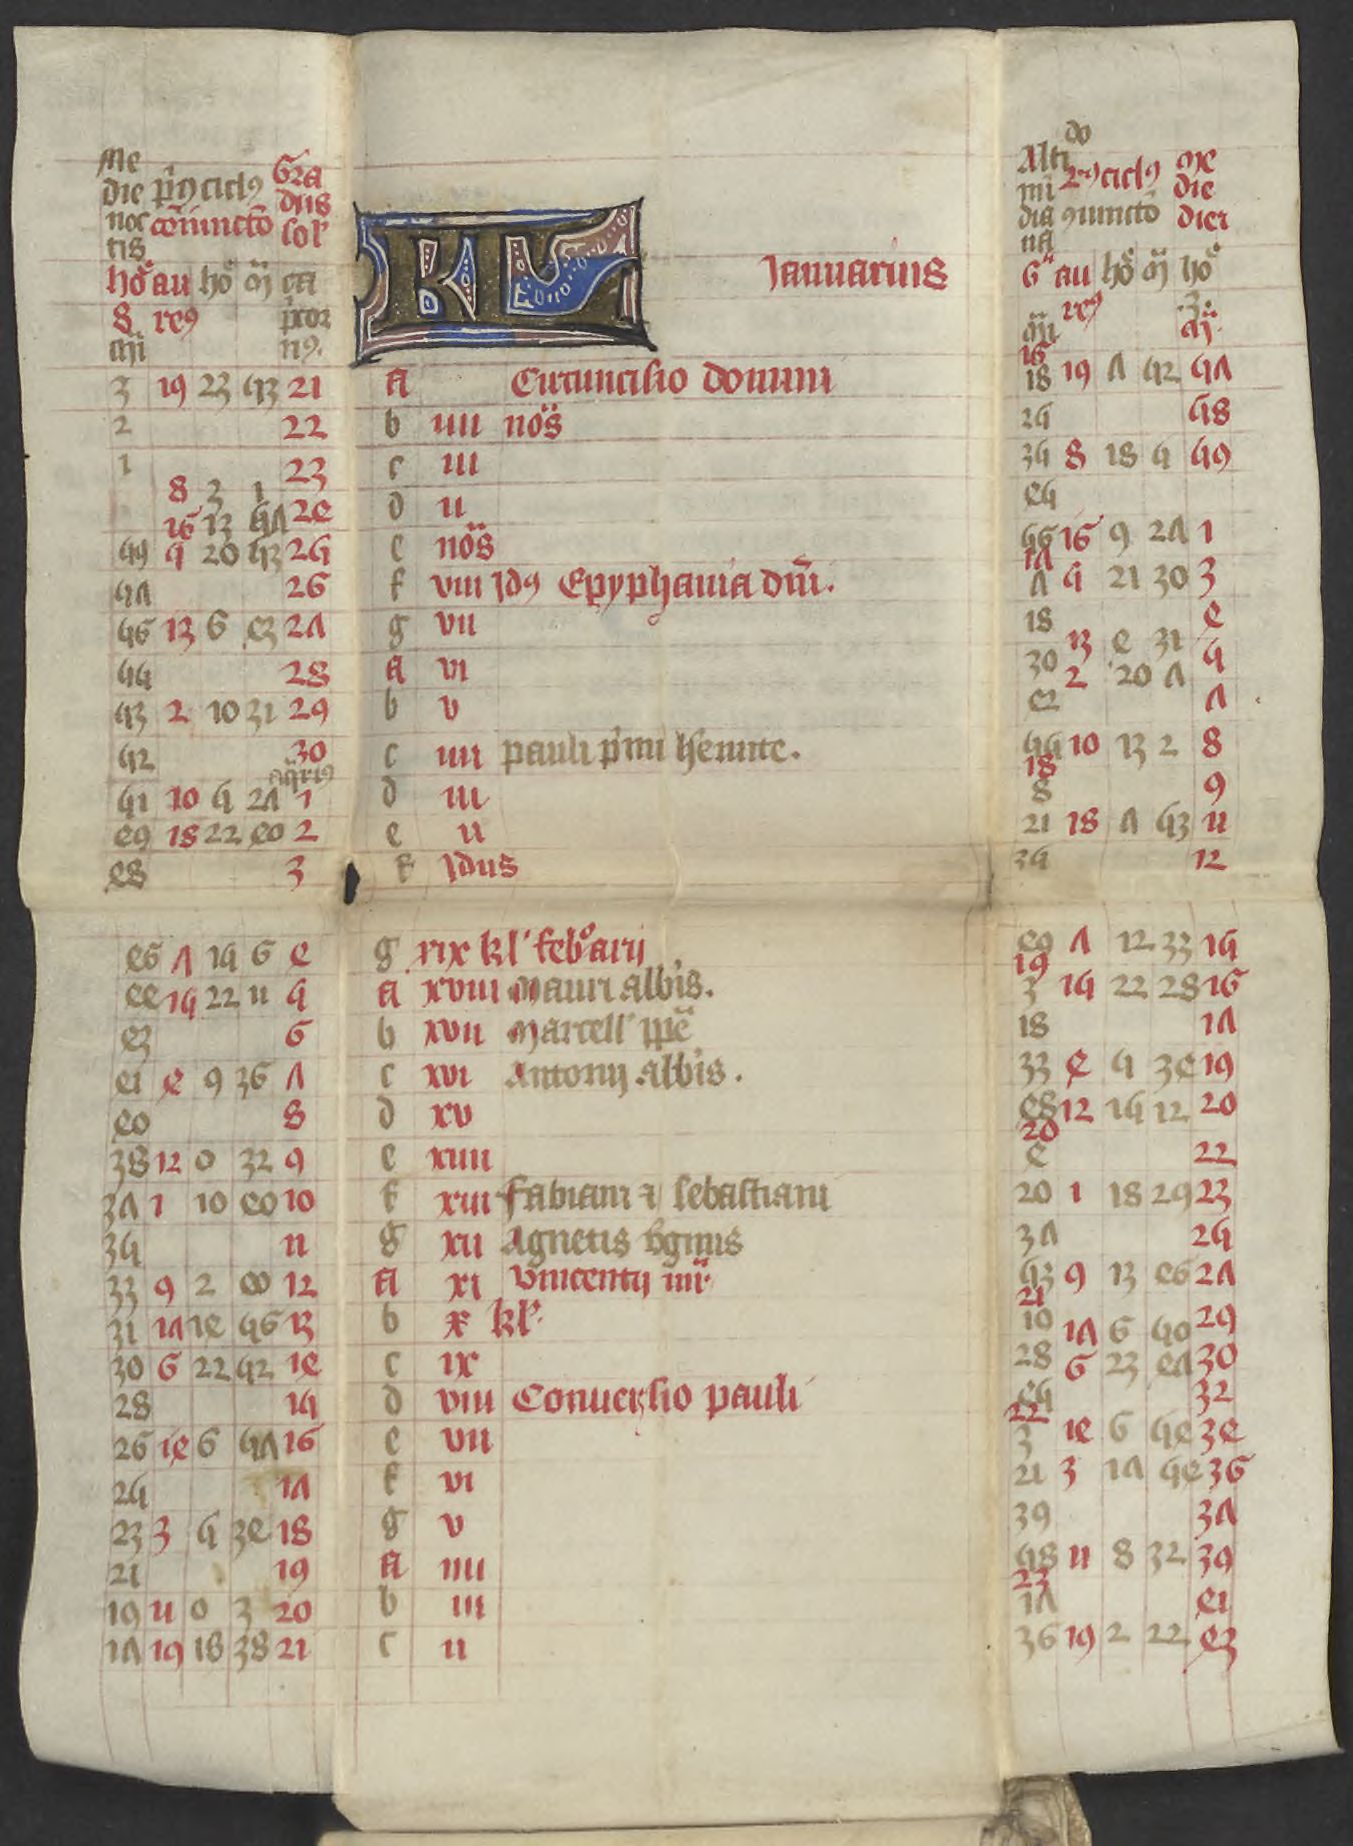 Me
die
noc
tis
p̃m9 ciclꝯ
cõiunctõ
Gra
dus
sol'
hõ au hõ m̃ ca
8 reꝯ p̃cor
m̃ nꝯ.
do
Alti
mi
dia
na
2ꝯ ciclꝯ
ꝯiunctõ
me
die
diei
G au hõ m̃ hõ
m̃ reꝯ .3. m̃.
KL Januarius
16
3 19 23 53 21 A Circuncisio domini 18 19 7 52 57
2 22 b iiii nõs 25 58
1 23 c iii 35 8 18 5 59
8 3 1 24 d ii 45
16 13 57
59 5 20 53 25 e nõs 56 16 9 27 1
17
57 26 f viii Idꝯ Epyphania dm̃. 7 5 21 30 3
56 13 6 43 27 g vii 18 4
55 28 A vi 30 13 4 31 5
53 2 10 31 29 b v 42 2 20 7 7
52 30 c iiii pauli p̃mi h̃emite. 55 10 13 2 8
aq̃riꝯ 18
51 10 5 27 1 d iii 8 9
49 18 22 40 2 e ii 21 18 7 53 11
48 3 f Idus 35 12
46 7 15 6 4 g xix kl' feb°arij 49 7 12 33 15
19
44 15 22 11 5 A xviii Mauri abbĩs. 3 15 22 28 16
43 6 b xvii Marcell' ppẽ 18 17
41 4 9 36 7 c xvi Antonij abbĩs. 33 4 5 34 19
40 8 d xv 48 12 15 12 20
20
38 12 0 32 9 e xiiii 4 22
37 1 10 40 10 f xiii Fabiani ⁊ sebastiani 20 1 18 29 23
35 11 g xii Agnetis ṽginis 37 25
33 9 2 40 12 A xi Vincentij mr̃. 53 9 13 46 27
21
31 17 14 56 13 b x kl'. 10 17 6 50 29
30 6 22 52 14 c ix 28 6 23 47 30
28 15 d viii Conuersio pauli 45 32
22
26 14 6 57 16 e vii 3 14 6 54 34
25 17 f vi 21 3 17 54 36
23 3 5 34 18 g v 39 37
21 19 A iiii 58 11 8 32 39
23
19 11 0 3 20 b iii 17 41
17 19 18 38 21 c ii 36 19 2 22 43